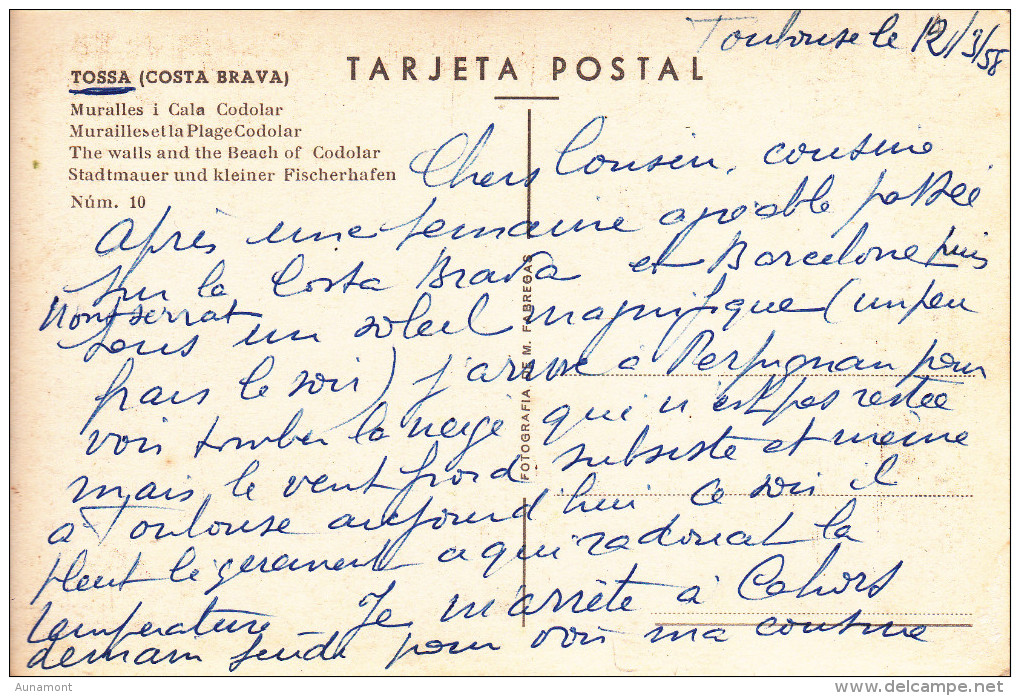 Toulouse le 12/3/58
TARJETA POSTAL
TOSSA (COSTA BRAVA)
Muralles i Cala Codolar
Murailles et la Plage Codolar
The walls and the Beach of Codolar
Stadtmauer und kleiner Fischerhafen
Núm. 10
FOTOGRAFIA DE M. FABREGAS
Chers Cousin, cousine
Après une semaine agréable passée
sur la Costa Brava et Barcelone puis
Montserrat
sous un soleil magnifique (un peu
frais le soir) j'arrive à Perpignan pour
voir tomber la neige qui n'est pas restée
mais le vent froid subsiste et même
à Toulouse aujourd'hui ce soir il
pleut légerement a qui radoucit la
température _ Je m'arrête à Cahors
demain jeudi pour voir ma cousine
Aunamont
delcampe.net